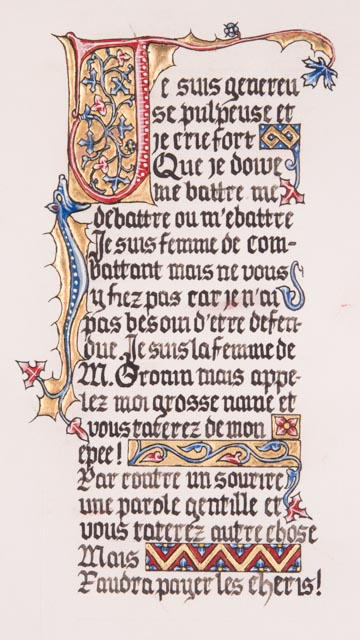 Je suis genereu
se pulpeuse et
je crie fort
Que je doive
me battre me
debattre ou m'ebattre
Je suis femme de com-
battant mais ne vous
y fiez pas car je n'ai
pas besoin d'etre defen
due. Je suis la femme de
M. Gronin mais appe-
lez moi grosse naine et
vous taterez de mon
epee!
Par contre un sourire
une parole gentille et
vous taterez autre chose
Mais
Faudra payer les cheris!